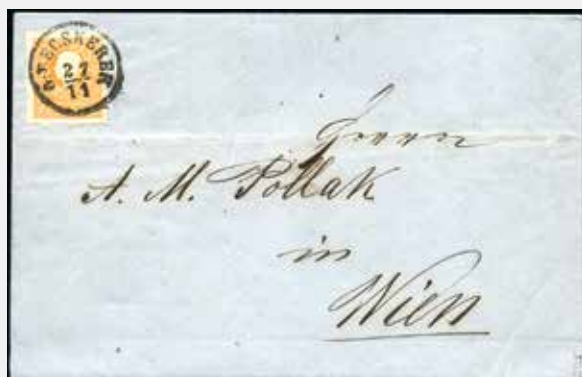 N. BECSKEREK
27
11
Herrn
A. M. Pollak
in
Wien